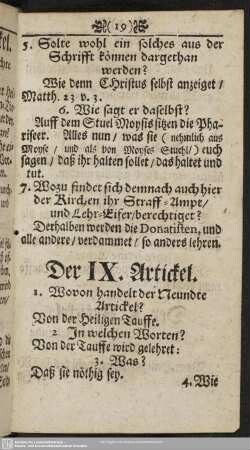 (19)
5. Solte wohl ein solches aus der
Schrifft können dargethan
werden?
Wie denn Christus selbst anzeiget /
Matth. 23 v. 3.
6. Wie sagt er daselbst?
Auff dem Stuel Moysis sitzen die Pha-
riseer. Alles nun / was sie (nehmlich aus
Moyse / und als von Moyses Stuehl /) euch
sagen / daß ihr halten sollet / das haltet und
tut.
7. Wozu findet sich demnach auch hier
der Kirchen ihr Straff-Ampt /
und Lehr-Eifer / berechtiget?
Derhalben werden die Donatisten, und
alle andere / verdammet / so anders lehren.
Der IX. Artickel.
1. Wovon handelt der Neundte
Artickel?
Von der Heiligen Tauffe.
2 In welchen Worten?
Von der Tauffe wird gelehret:
3. Was?
Daß sie nöthig sey.
4. Wie